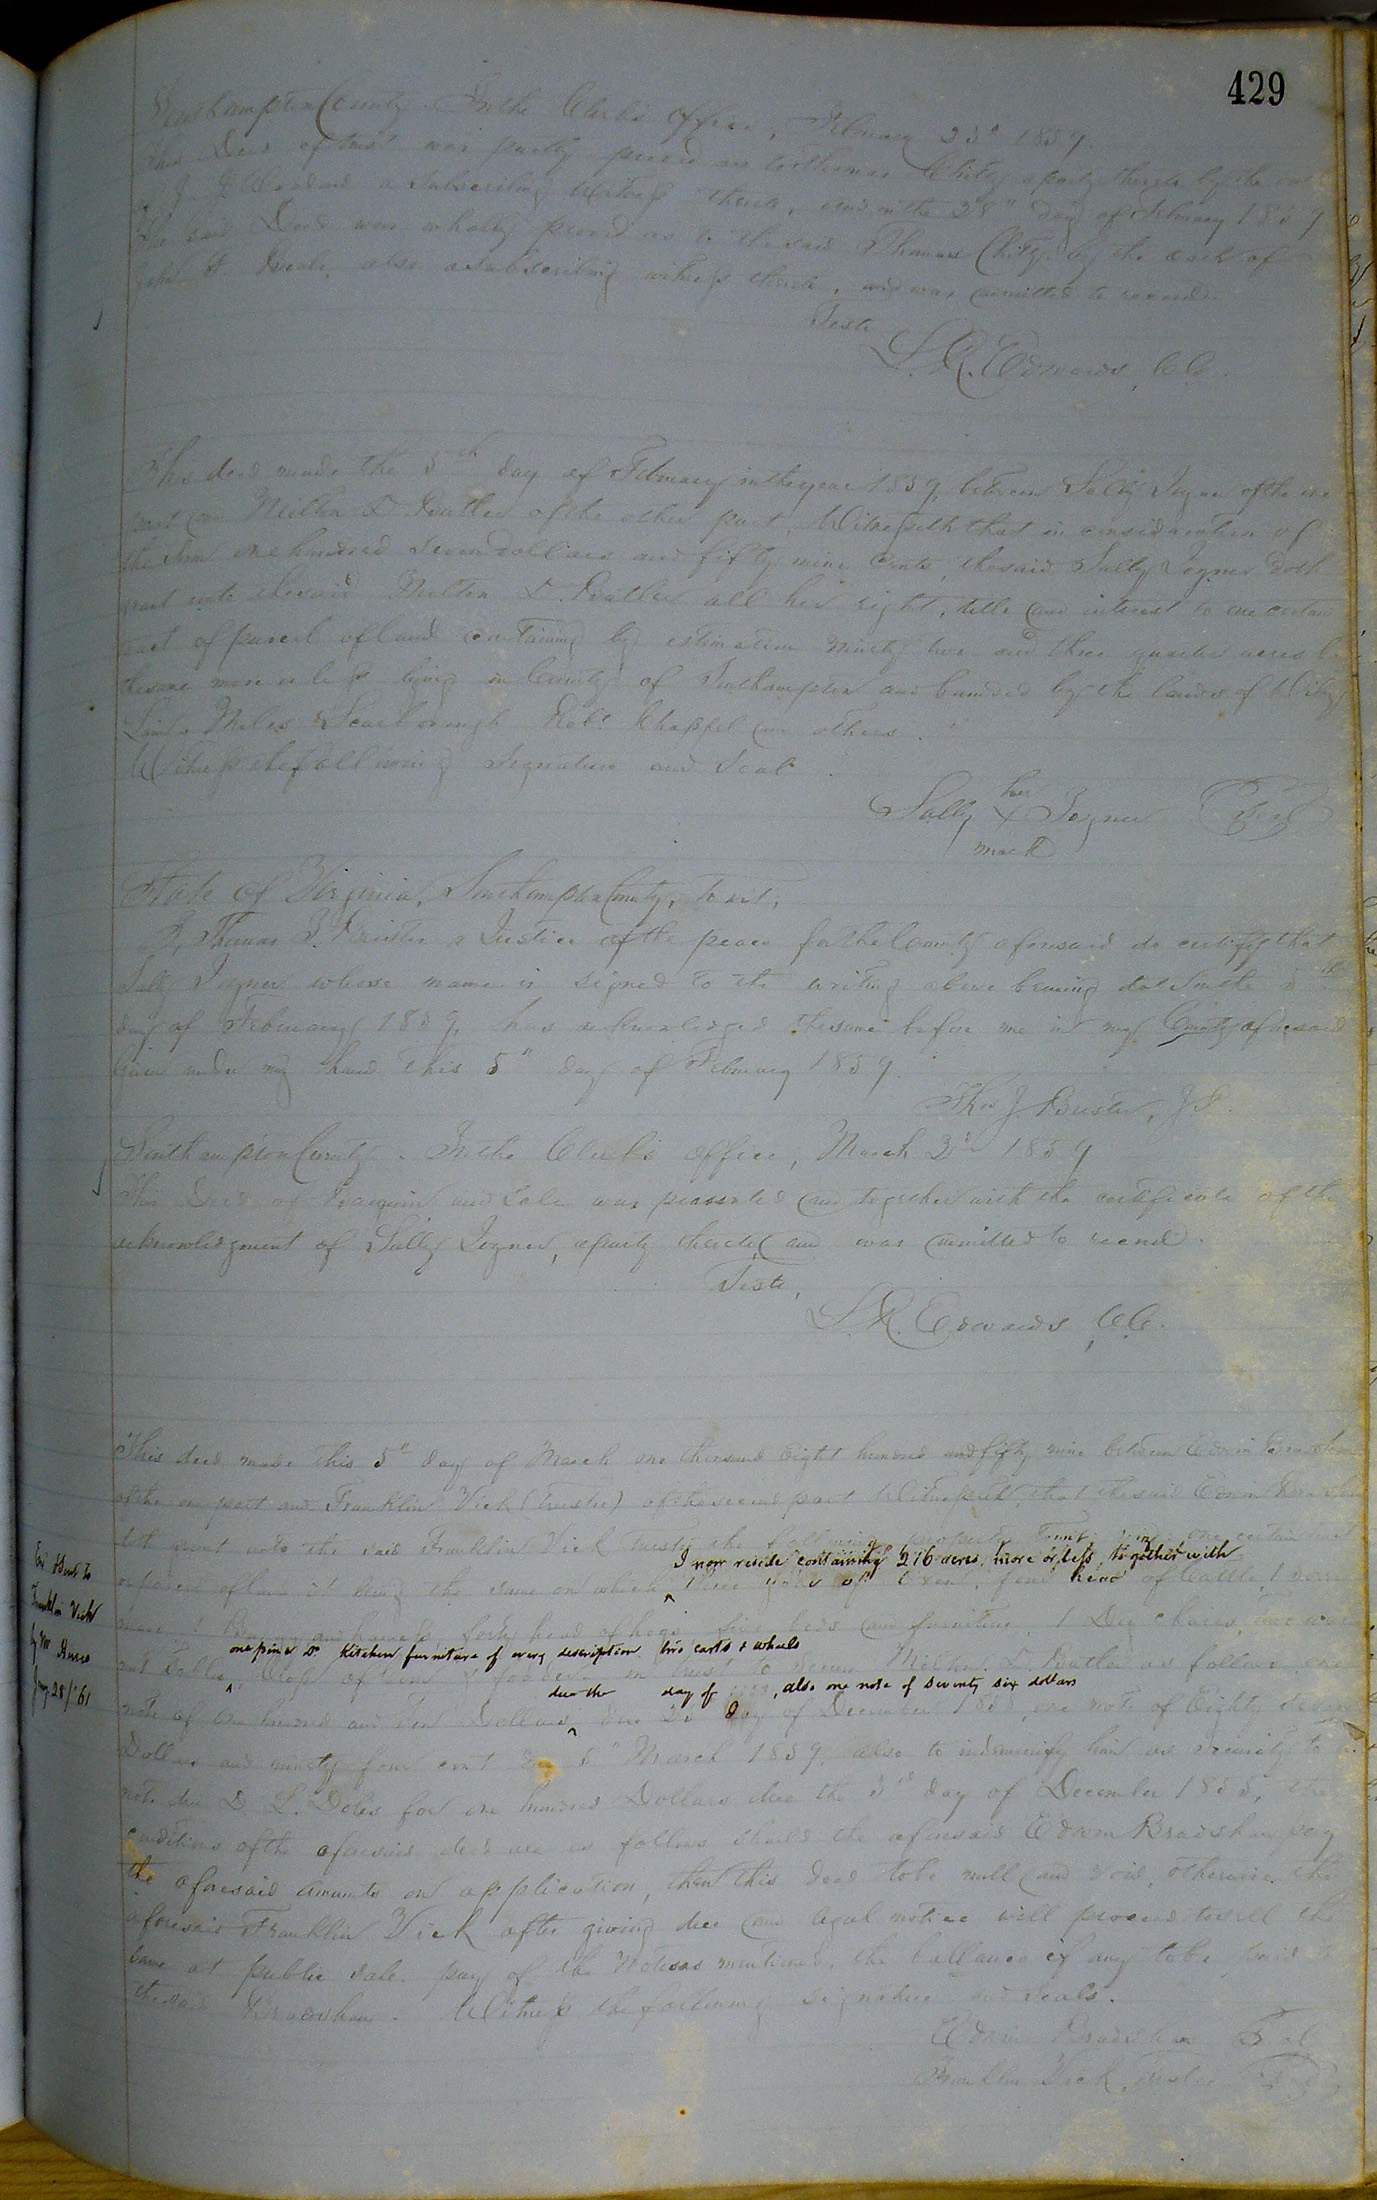 429
Southampton County. In the Clerk's Office, February 23d 1859.
This Deed of trust was partly proved as to Thomas Chitty a party thereto by the oath
of J. Woodard a subscribing witness thereto, and on the 28" day of February 1859
the said Deed was wholly proved as to the said Thomas Chitty by the oath of
John A. also a subscribing witness thereto, and was admitted to record.
Teste
L. R. Edwards, C.C.
This deed made the 5th day of February in the year 1859, between Sally Joyner of the one
part and Milton L. Butler of the other part, Witnesseth that in consideration of
the sum one hundred seven dollars and fifty nine cents, the said Sally Joyner doth
grant unto the said Milton L. Butler all her right, title and interest to one certain
tract of parcel of land containing by estimation Ninety two and three quarter acres be
the same more or less lying in County of Southampton and bounded by the lands of Wiley
Miles Scarborough Robt. Chappel and others.
Witness the following signature and seal
her
Sally X Joyner Seal
mark
State of Virginia, Southampton County, to wit,
I, Thomas J. a Justice of the peace for the County aforesaid do certify that
Sally Joyner whose name is signed to the writing above bearing date on the 5th
day of February 1859, has acknowledged the same before me in my County aforesaid
Given under my hand this 5" day of February 1859.
Thos J. J.P.
Southampton County. In the Clerk's Office, March 3d 1859
This Deed of Bargain and Sale was presented and together with the certificate of the
acknowledgment of Sally Joyner, a party thereto, and was admitted to record.
Teste,
L. R. Edwards, C.C.
This deed made this 5" day of March one thousand Eight hundred and fifty nine between Edwin Bradshaw
of the one part and Franklin Vick (Trustee) of the second part Witnesseth, that the said Edwin Bradshaw
doth grant unto the said Franklin Vick trustee the following property one certain tract
I now reside containing 216 acres, more or less, together with
or parcel of land it being the same on which ^ three yoke of Oxen, four head of Cattle, 1
mare, 1 Buggy and harness, forty head of hogs, five beds and furniture, 1 Doz chairs, two
one pine Do Kitchen furniture of every description two carts & wheels
nut table ^ in trust to secure Milton L. Butler as follows one
due the day of 1858, also one note of seventy six dollars
note of One hundred and Ten Dollars ^ due 25 day of December 1858, one note of Eighty seven
Dollars and ninety four cent due 5" March 1859, also to indemnify him as security to a
note due D. L. Doles for one hundred Dollars due the 3rd day of December 1858, the
conditions of the aforesaid deed are as follows should the aforesaid Edwin Bradshaw pay
the aforesaid amounts on application, then this deed to be null and void, otherwise the
aforesaid Franklin Vick after giving due and legal notice will proceed to sell the
same at public sale. pay of the Notes as mentioned, the ballance if any to be paid
the said Bradshaw. Witness the following signature and seals.
Edwin Bradshaw Seal
Franklin Vick, trustee Seal
Franklin Vick
by Mr
Jany 28/'61